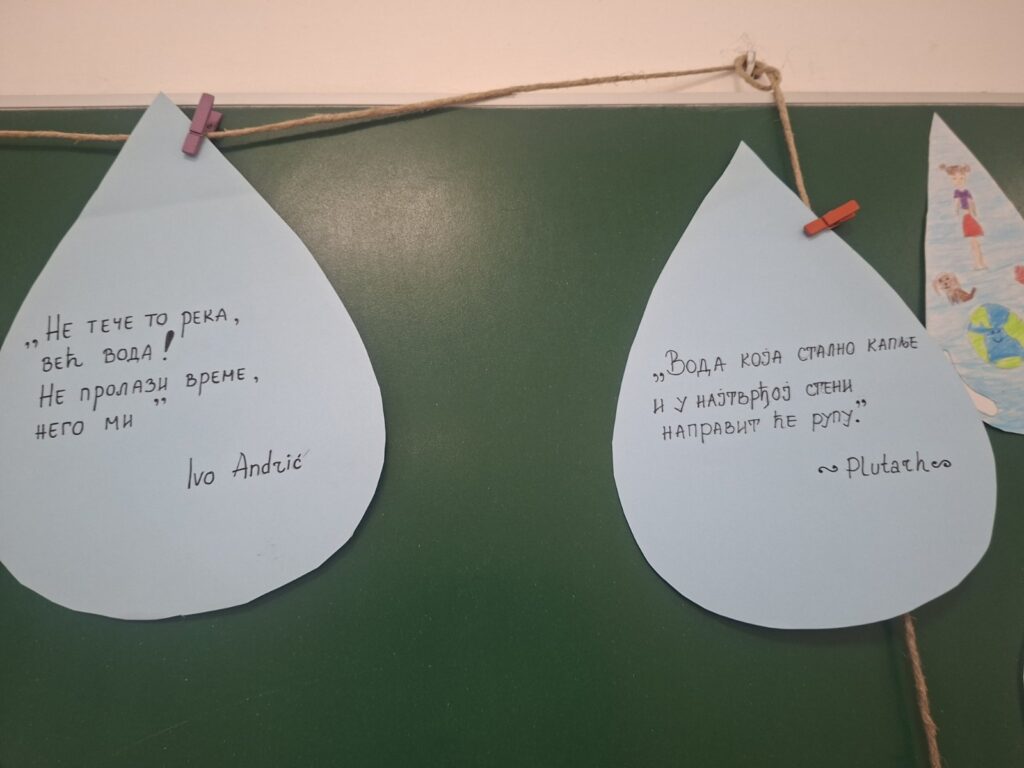 „Не тече то река,
већ вода!
Не пролази време,
него ми”
Ivo Andrić
„Вода која стално капље
и у најтврђој стени
направит ће рупу.”
~ Plutarh ~